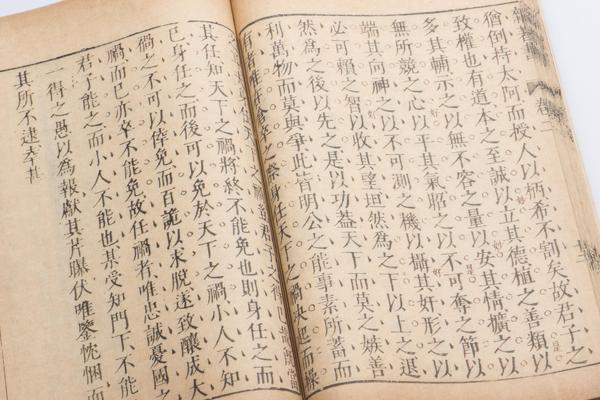 卷二
猶倒持太阿而授人以柄希不割矣故君子之
致權也有道本之至誠以立其德植之善類以
多其輔示之以無不容之量以安其情擴之以
無所競之心以平其氣昭之以不可奪之節以
端其向神之以不可測之機以攝其奸形之以
必可賴之智以收其望坦然爲之下以上之退
然爲之後以先之是以功葢天下而莫之嫉善
利萬物而莫與爭此皆明公之能事素所蓄而
有者惟在倉卒之際身任天下之禍決起而操
其任知天下之禍將終不能免也則身任之而
已身任之而後可以免於天下之禍小人不知
禍之不可以倖免而百詭以求脫遂致釀成大
禍而已亦卒不能免故任禍者惟忠誠憂國之
君子能之而小人不能也某受知門下不能
一得之愚以爲報獻其芹曝伏惟鑒忱悃而
其所不逮幸甚